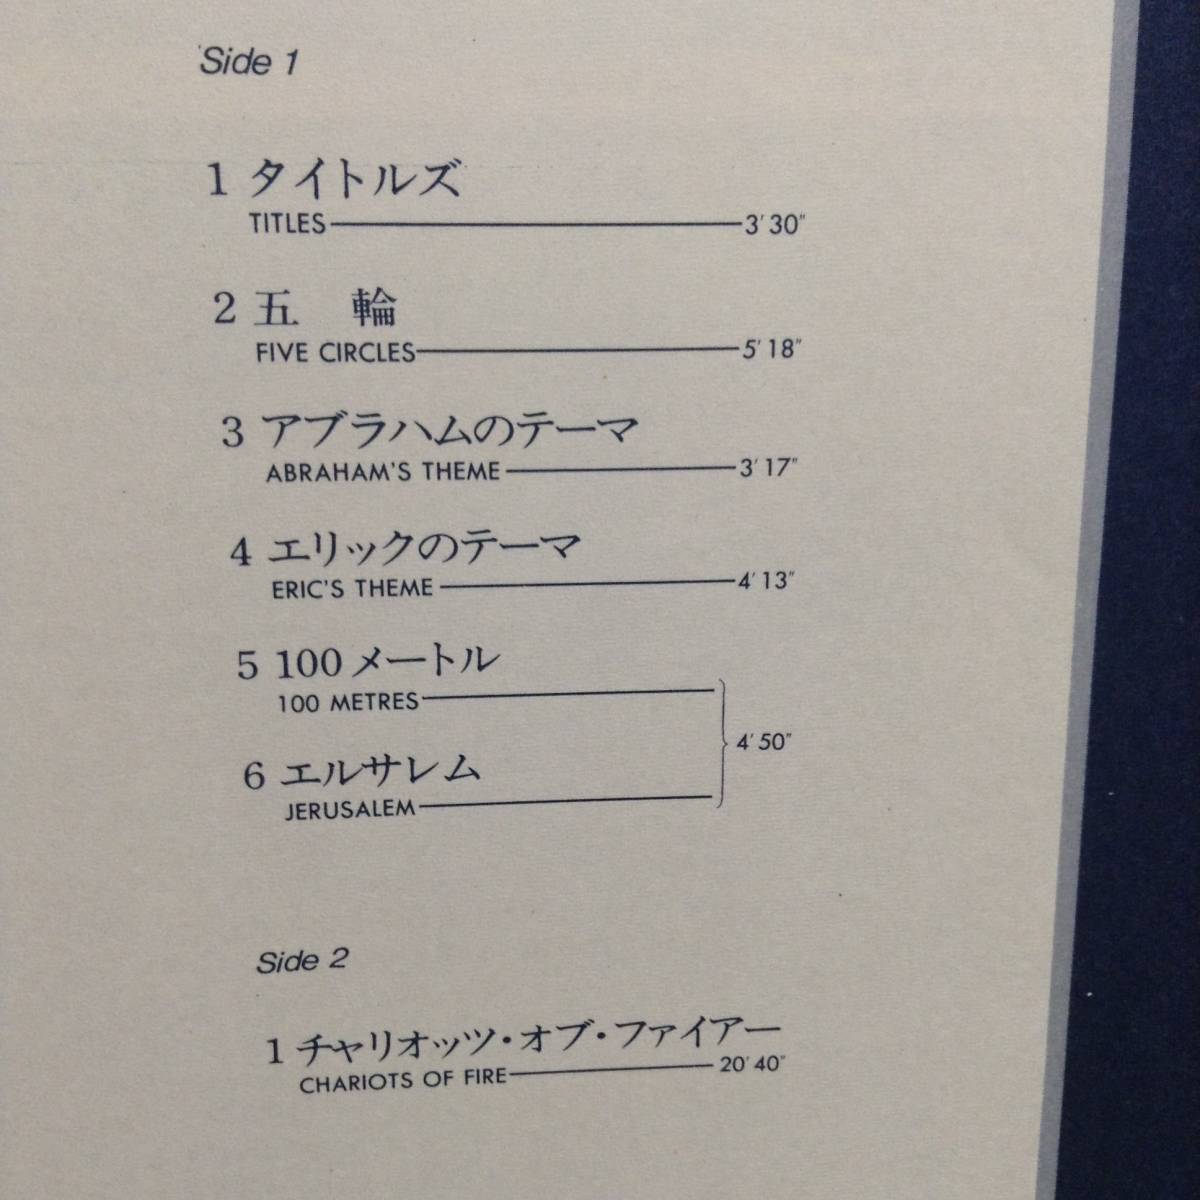 Side 1
1 タイトルズ
TITLES 3′30″
2 五 輪
FIVE CIRCLES 5′18″
3 アブラハムのテーマ
ABRAHAM'S THEME 3′17″
4 エリックのテーマ
ERIC'S THEME 4′13″
5 100メートル
100 METRES
4′50″
6 エルサレム
JERUSALEM
Side 2
1 チャリオッツ・オブ・ファイアー
CHARIOTS OF FIRE 20′40″